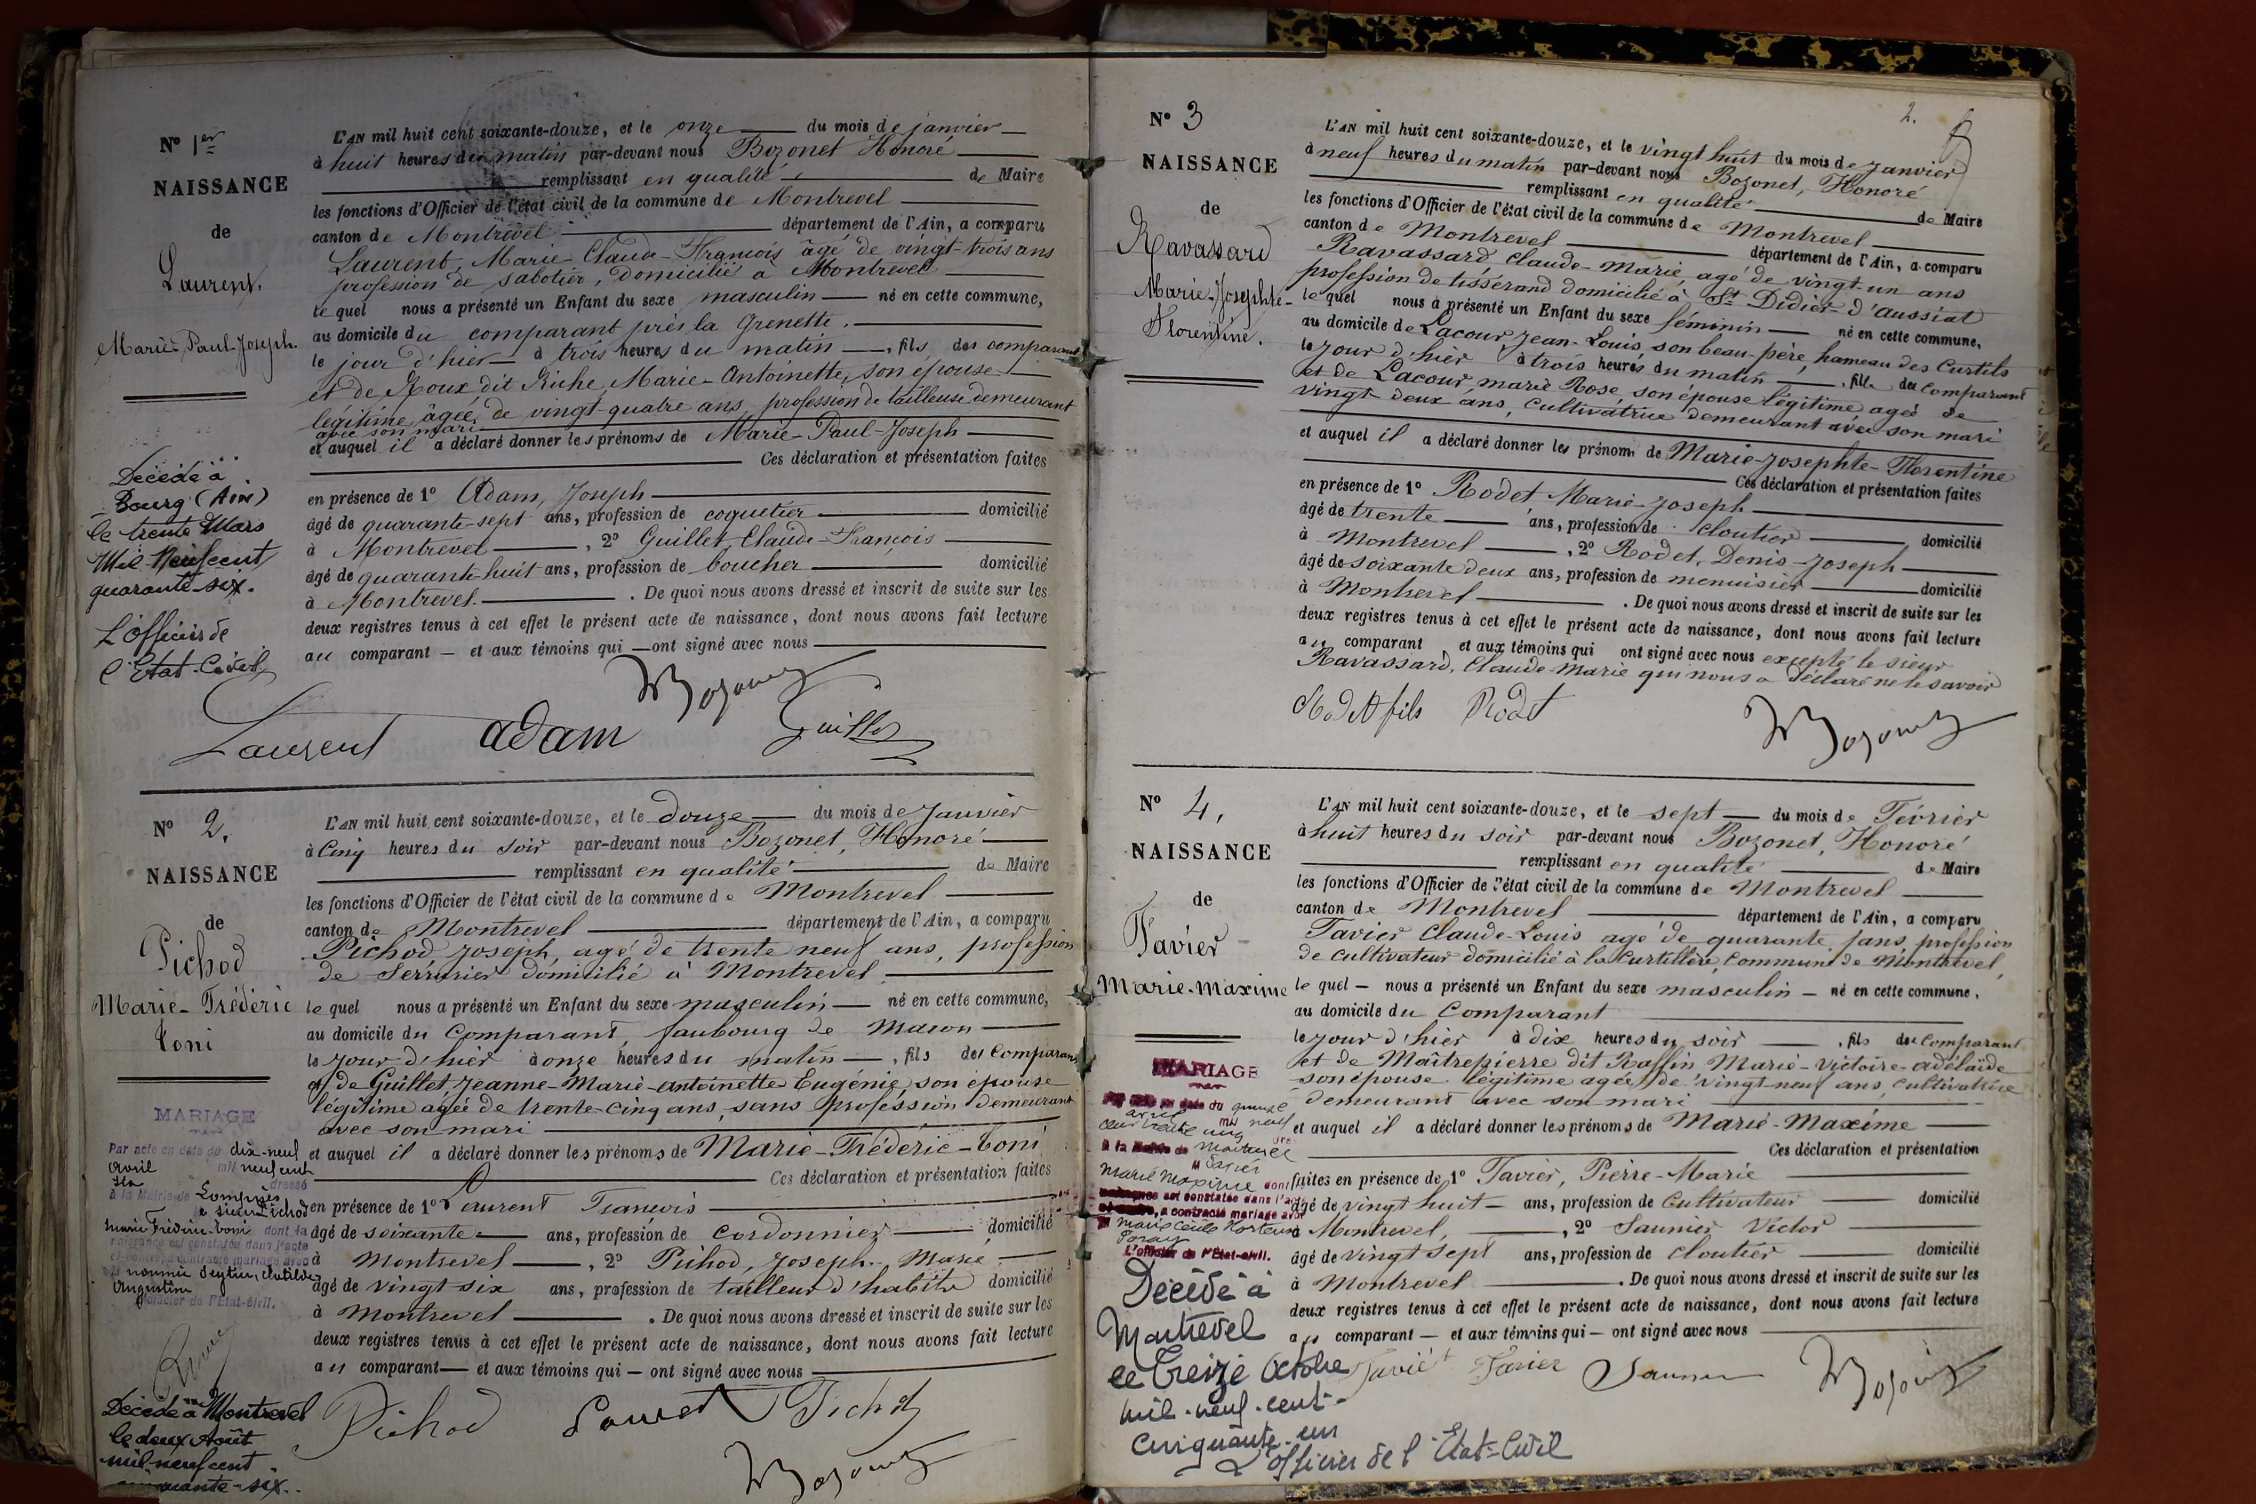 N° 1er
NAISSANCE
de
Laurent,
Marie-Paul-Joseph.
Décédé à
Bourg (Ain)
le trente Mars
Mil Neuf cent
quarante-six.
L'officier de
l'Etat-Civil
L'AN mil huit cent soixante-douze, et le onze du mois de janvier
à huit heures du matin par-devant nous Bozonet Honoré
remplissant en qualité de Maire
les fonctions d'Officier de l'état civil de la commune de Montrevel
canton de Montrevel département de l'Ain, a comparu
Laurent, Marie-Claude-François âgé de vingt-trois ans
profession de sabotier, domicilié à Montrevel
le quel nous a présenté un Enfant du sexe masculin né en cette commune,
au domicile du comparant près la Grenette.
le jour d'hier à trois heures du matin, fils du comparant
et de Roux dit Riche, Marie-Antoinette, son épouse
légitime âgée de vingt-quatre ans, profession de tailleuse demeurant
avec son mari
et auquel il a déclaré donner les prénoms de Marie-Paul-Joseph
Ces déclaration et présentation faites
en présence de 1° Adam, Joseph
âgé de quarante-sept ans, profession de coquetier domicilié
à Montrevel, 2° Guillet, Claude-François
âgé de quarante-huit ans, profession de boucher domicilié
à Montrevel. De quoi nous avons dressé et inscrit de suite sur les
deux registres tenus à cet effet le présent acte de naissance, dont nous avons fait lecture
au comparant — et aux témoins qui — ont signé avec nous
Bozonet
Laurent adam Guillet
N° 2,
NAISSANCE
de
Pichod
Marie-Frédéric
Toni
MARIAGE
Par acte en date du dix-neuf
avril mil neuf cent
dressé
à la Mairie de Lompnès
le sieur Pichod
Marie Frédéric Toni dont la
naissance est constatée dans l'acte
ci-contre, a contracté mariage avec
Augustine
L'officier de l'Etat-civil.
Décédé à Montrevel
le deux Août
mil neuf cent
L'AN mil huit cent soixante-douze, et le douze du mois de Janvier
à Cinq heures du soir par-devant nous Bozonet, Honoré
remplissant en qualité de Maire
les fonctions d'Officier de l'état civil de la commune de Montrevel
canton de Montrevel département de l'Ain, a comparu
Pichod Joseph, agé de trente neuf ans, profession
de Serrurier domicilié à Montrevel
le quel nous a présenté un Enfant du sexe masculin né en cette commune,
au domicile du Comparant, faubourg de Macon
le jour d'hier à onze heures du matin, fils du Comparant
et de Guillet Jeanne-Marie-antoinette Eugénie, son épouse
légitime agée de trente-cinq ans, sans profession demeurant
avec son mari
et auquel il a déclaré donner les prénoms de Marie-Frédéric-Toni
Ces déclaration et présentation faites
en présence de 1° Laurent François
âgé de soixante ans, profession de Cordonnier domicilié
à Montrevel, 2° Pichod, Joseph-Marie
âgé de vingt six ans, profession de tailleur d'habits domicilié
à Montrevel. De quoi nous avons dressé et inscrit de suite sur les
deux registres tenus à cet effet le présent acte de naissance, dont nous avons fait lecture
au comparant — et aux témoins qui — ont signé avec nous
Pichod Laurent Pichod
Bozonet
2.
N° 3
NAISSANCE
de
Ravassard
Marie-Josephte-
Florentine.
L'AN mil huit cent soixante-douze, et le vingt huit du mois de Janvier
à neuf heures du matin par-devant nous Bozonet, Honoré
remplissant en qualité de Maire
les fonctions d'Officier de l'état civil de la commune de Montrevel
canton de Montrevel département de l'Ain, a comparu
Ravassard, Claude-Marie, agé de vingt-un ans
profession de tisserand domicilié à St Didier-d'aussiat
le quel nous a présenté un Enfant du sexe féminin né en cette commune,
au domicile de Lacour, Jean-Louis, son beau-père, hameau des Curtils
le jour d'hier à trois heures du matin, fille du Comparant
et de Lacour, marie Rose, son épouse légitime, agée de
vingt deux ans, Cultivatrice demeurant avec son mari
et auquel il a déclaré donner les prénoms de Marie-Josephte-Florentine
Ces déclaration et présentation faites
en présence de 1° Rodet, Marie-Joseph
âgé de trente ans, profession de Cloutier domicilié
à Montrevel, 2° Rodet, Denis-Joseph
âgé de soixante deux ans, profession de menuisier domicilié
à Montrevel. De quoi nous avons dressé et inscrit de suite sur les
deux registres tenus à cet effet le présent acte de naissance, dont nous avons fait lecture
au comparant et aux témoins qui ont signé avec nous excepté le sieur
Ravassard, Claude-Marie qui nous a déclaré ne le savoir
Rodet fils Rodet Bozonet
N° 4,
NAISSANCE
de
Favier
Marie-Maxime
MARIAGE
L'officier de l'Etat-civil.
Décédé à
Montrevel
le Treize Octobre
mil-neuf-cent-
Cinquante-un
L'officier de l'Etat-Civil
L'AN mil huit cent soixante-douze, et le sept du mois de Février
à huit heures du soir par-devant nous Bozonet, Honoré
remplissant en qualité de Maire
les fonctions d'Officier de l'état civil de la commune de Montrevel
canton de Montrevel département de l'Ain, a comparu
Favier Claude-Louis agé de quarante ans, profession
de cultivateur domicilié à la Curtillère, Commune de Montrevel,
le quel — nous a présenté un Enfant du sexe masculin — né en cette commune,
au domicile du Comparant
le jour d'hier à dix heures du soir, fils du Comparant
et de Maîtrepierre dit Raffin Marie-Victoire-adélaïde
son épouse légitime agée de vingt-neuf ans, Cultivatrice
demeurant avec son mari
et auquel il a déclaré donner les prénoms de Marie-Maxime
Ces déclaration et présentation
faites en présence de 1° Favier, Pierre-Marie
âgé de vingt huit — ans, profession de Cultivateur domicilié
à Montrevel, 2° Saunier Victor
âgé de vingt sept ans, profession de Cloutier domicilié
à Montrevel. De quoi nous avons dressé et inscrit de suite sur les
deux registres tenus à cet effet le présent acte de naissance, dont nous avons fait lecture
au comparant — et aux témoins qui — ont signé avec nous
Favier Favier Saunier Bozonet